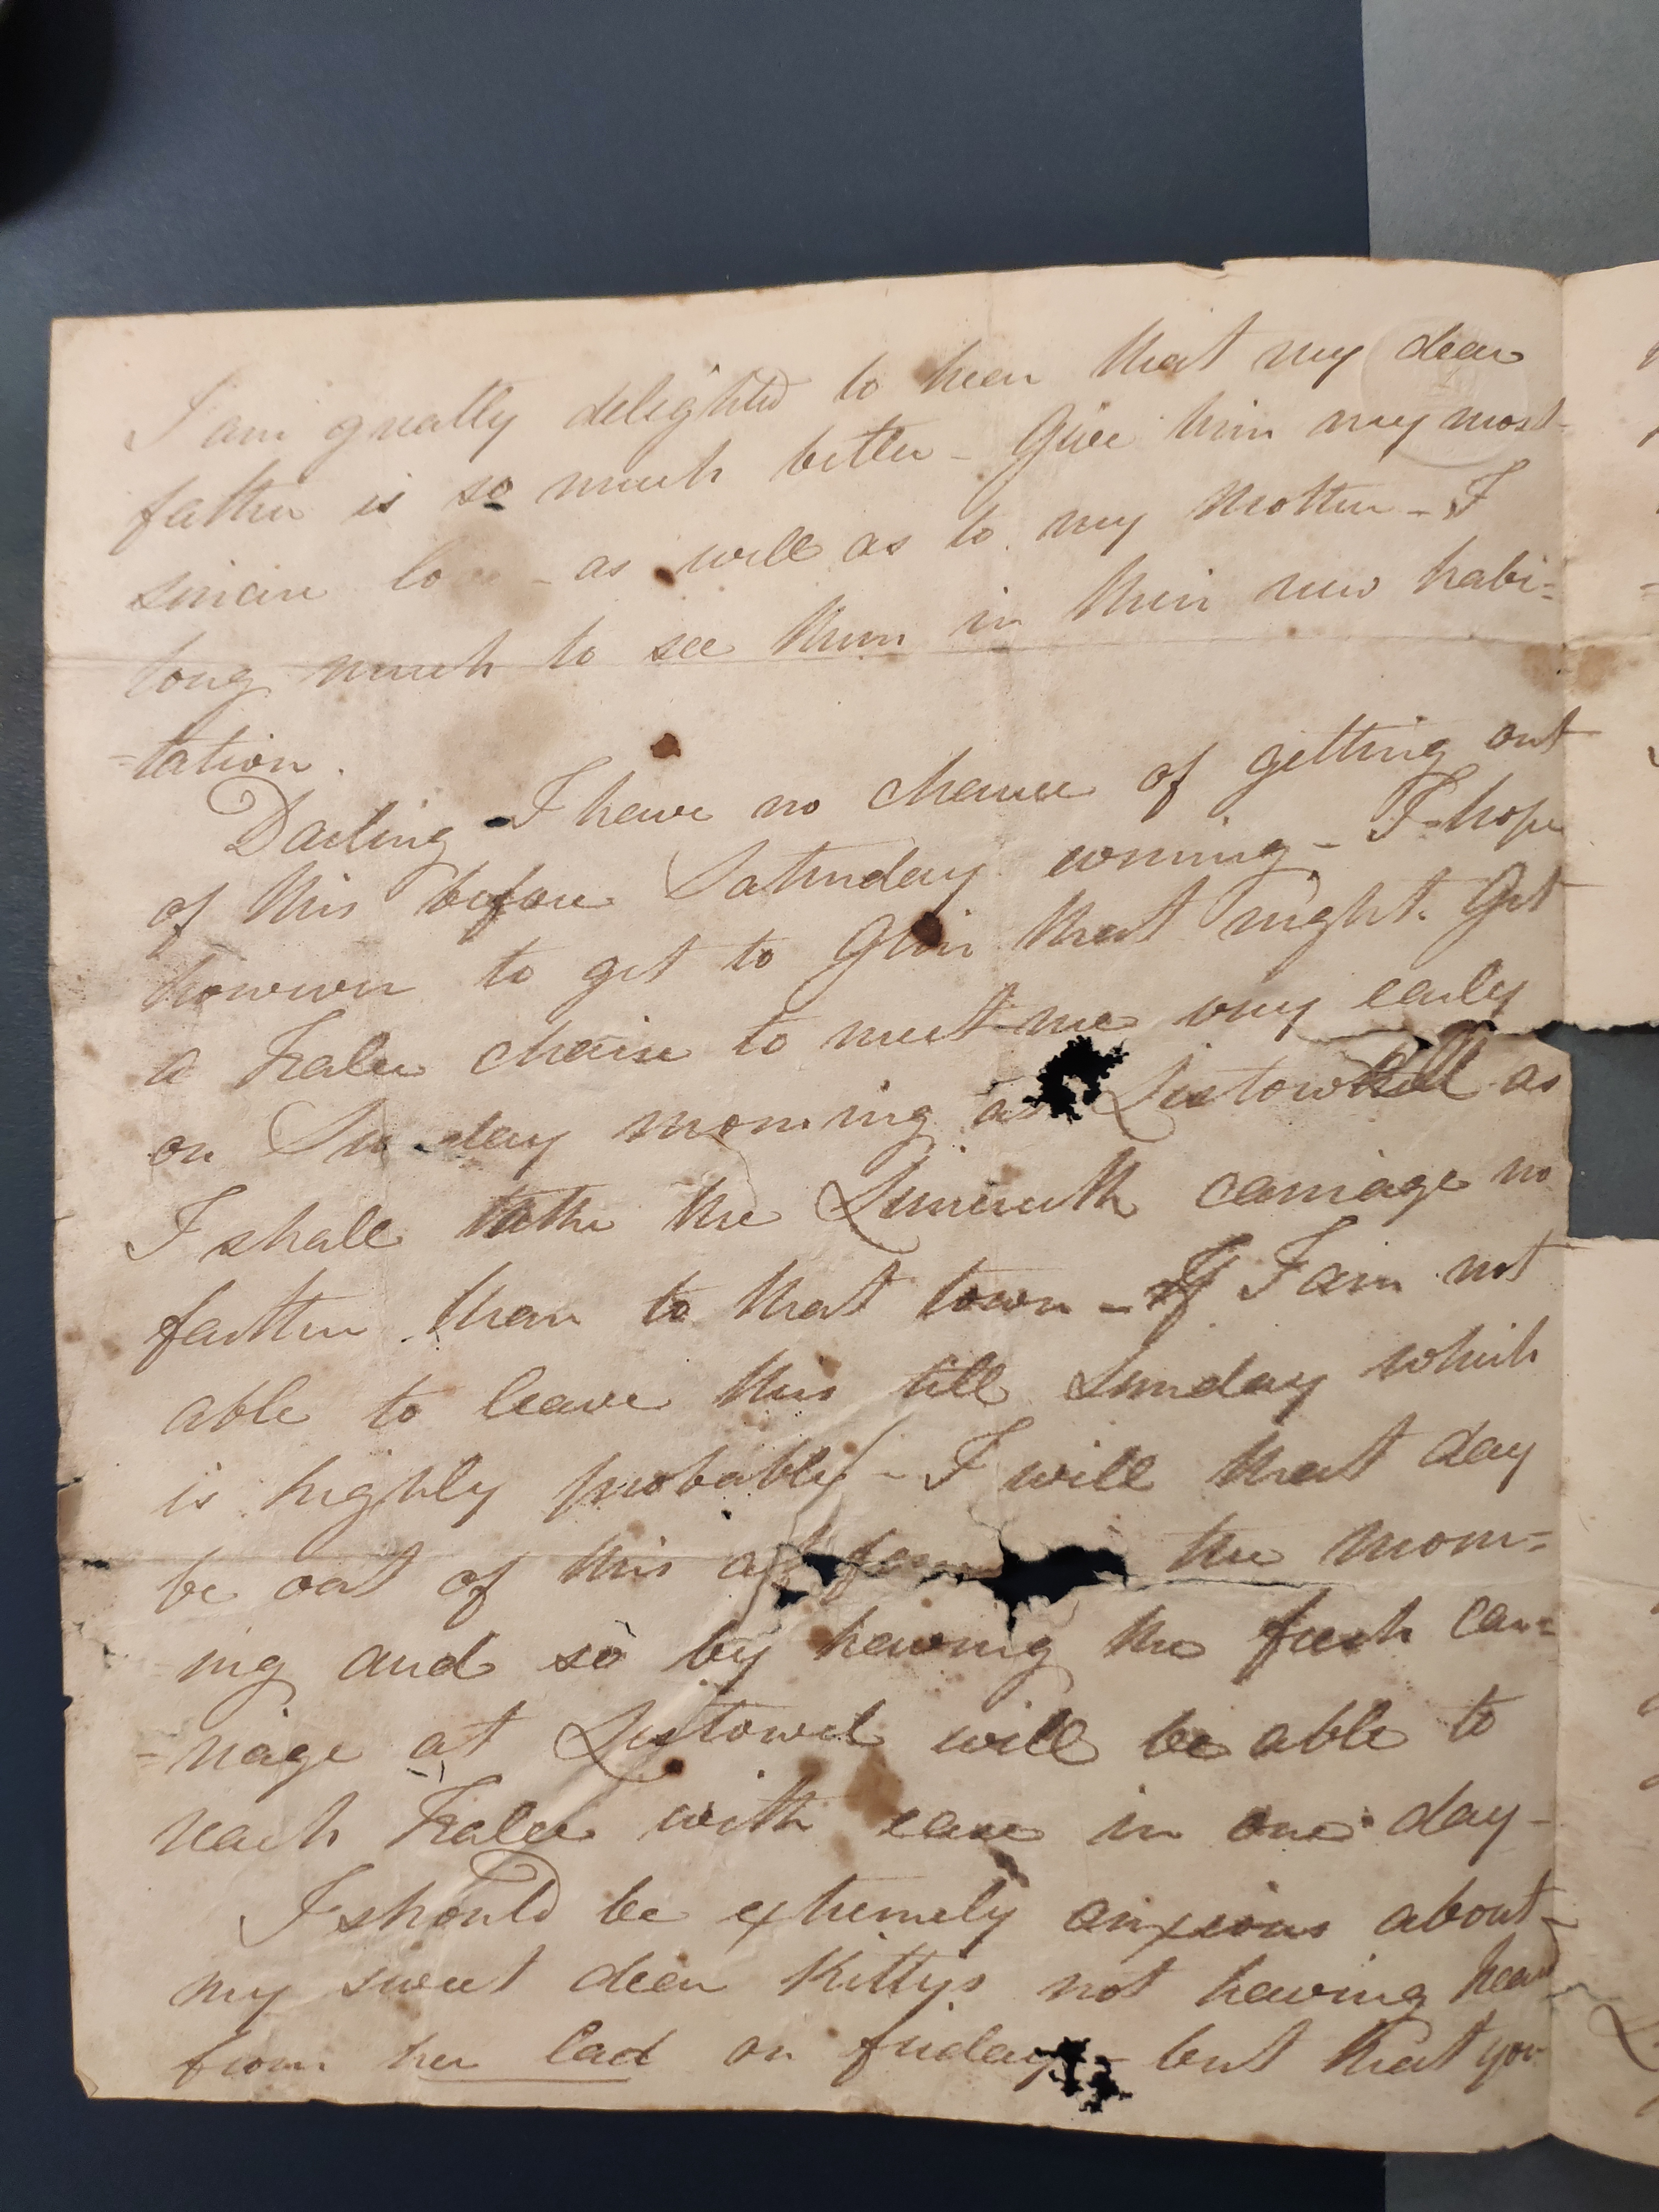 I am greatly delighted to hear that my dear
father is so much better – Give him my most
sincere lo – as well as to my Mother – I
long much to see them in their new habi=
=tation.
Darling I have no chance of getting out
of this before Saturday evening – I hope
however to get to Glin that night. Get
a Tralee chaise to meet me very early
on Su day morning at Listowell as
I shall take the Limerick carriage no
farther than to that town – If I am not
able to leave this till Sunday which
is highly probable – I will that day
be out of this at the morn=
ing and so by having the fresh car=
=riage at Listowel will be able to
reach Tralee with ease in one day –
I should be extremely anxious about
my sweet dear Kittys not having heard
from her lad on friday – but that you